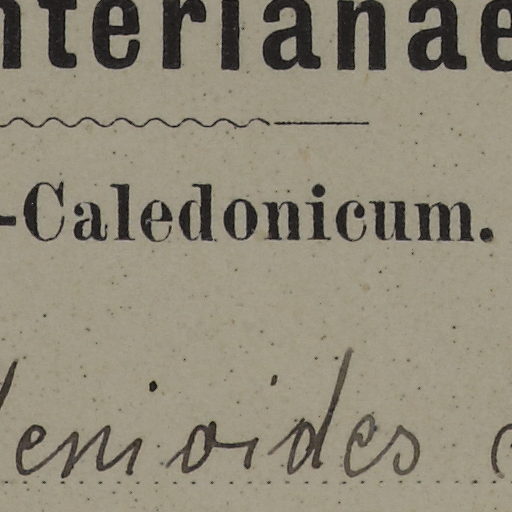 nterianae
-Caledonicum.
lenioides